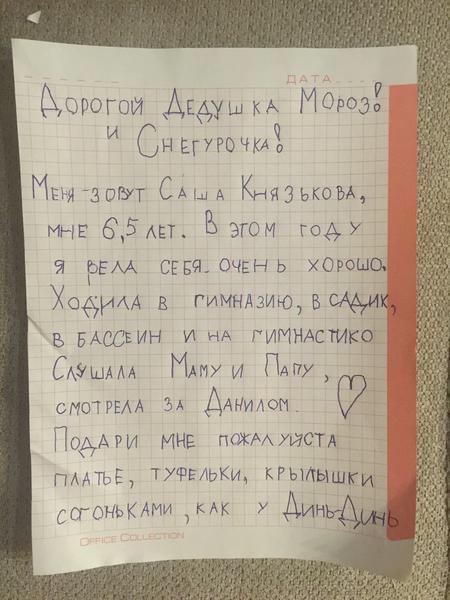 ДАТА
ДОРОГОЙ ДЕДУШКА МОРОЗ!
И СНЕГУРОЧКА!
МЕНЯ ЗОВУТ САША КНЯЗЬКОВА,
МНЕ 6,5 ЛЕТ. В ЭТОМ ГОДУ
Я ВЕЛА СЕБЯ ОЧЕНЬ ХОРОШО.
ХОДИЛА В ГИМНАЗИЮ, В САДИК,
В БАССЕИН И НА ГИМНАСТИКО
СЛУШАЛА МАМУ И ПАПУ,
СМОТРЕЛА ЗА ДАНИЛОМ.
ПОДАРИ МНЕ ПОЖАЛУЙСТА
ПЛАТЬЕ, ТУФЕЛЬКИ, КРЫЛЫШКИ
СОГОНЬКАМИ, КАК У ДИНЬ-ДИНЬ
OFFICE COLLECTION